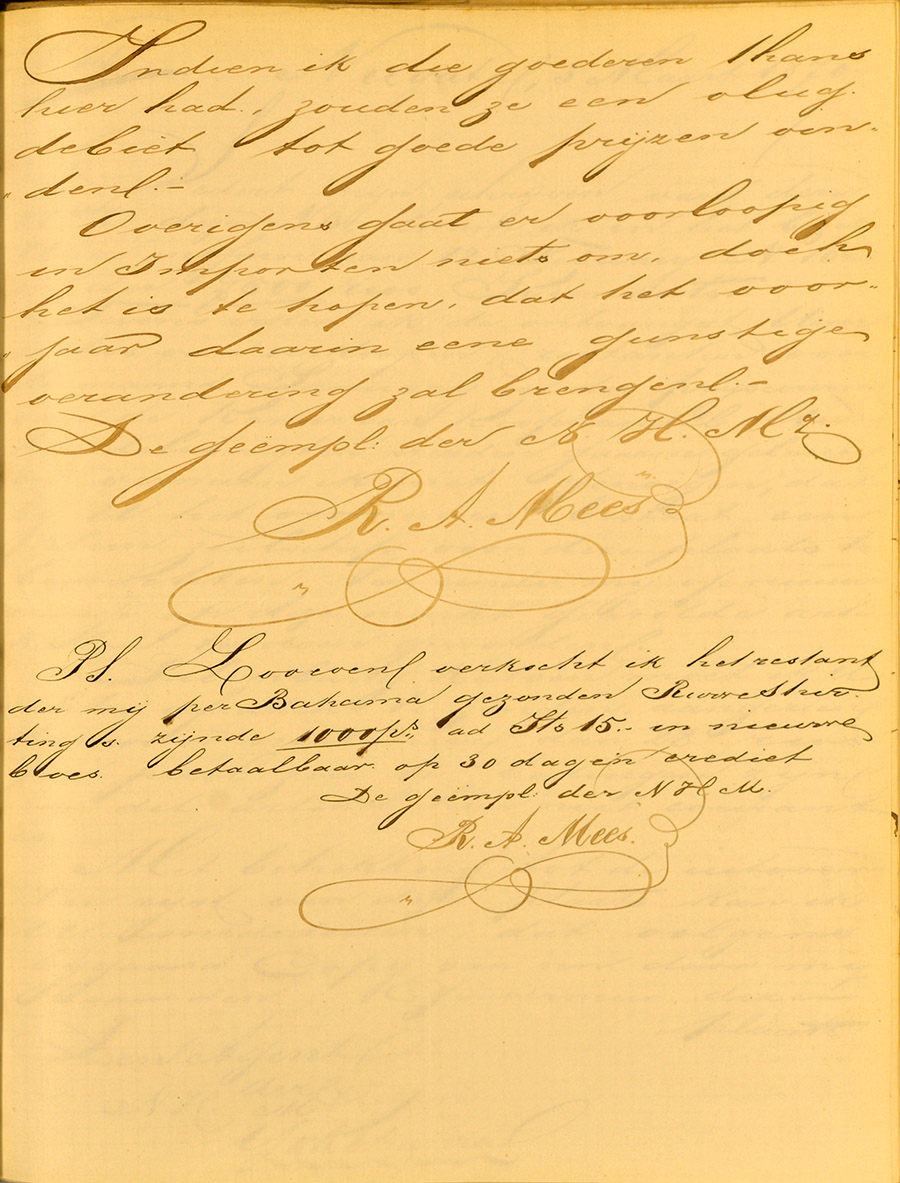 Indien ik die goederen thans
hier had, zouden ze een vlug
debiet tot goede prijzen vin-
"den.-
Overigens gaat er voorloopig
in Importen niets om, doch
het is te hopen, dat het voor-
"jaar daarin eene gunstige
verandering zal brengen.-
De geëmpl: der N. H. Mij.
R. A. Mees
PS. Zooeven verkocht ik het restant
der mij per Bahama gezonden Ruwe Shir-
tings. zijnde 1000 ps ad Its 15.- in nieuwe
boes. betaalbaar op 30 dagen crediet
De geëmpl: der N H M.
R. A. Mees.